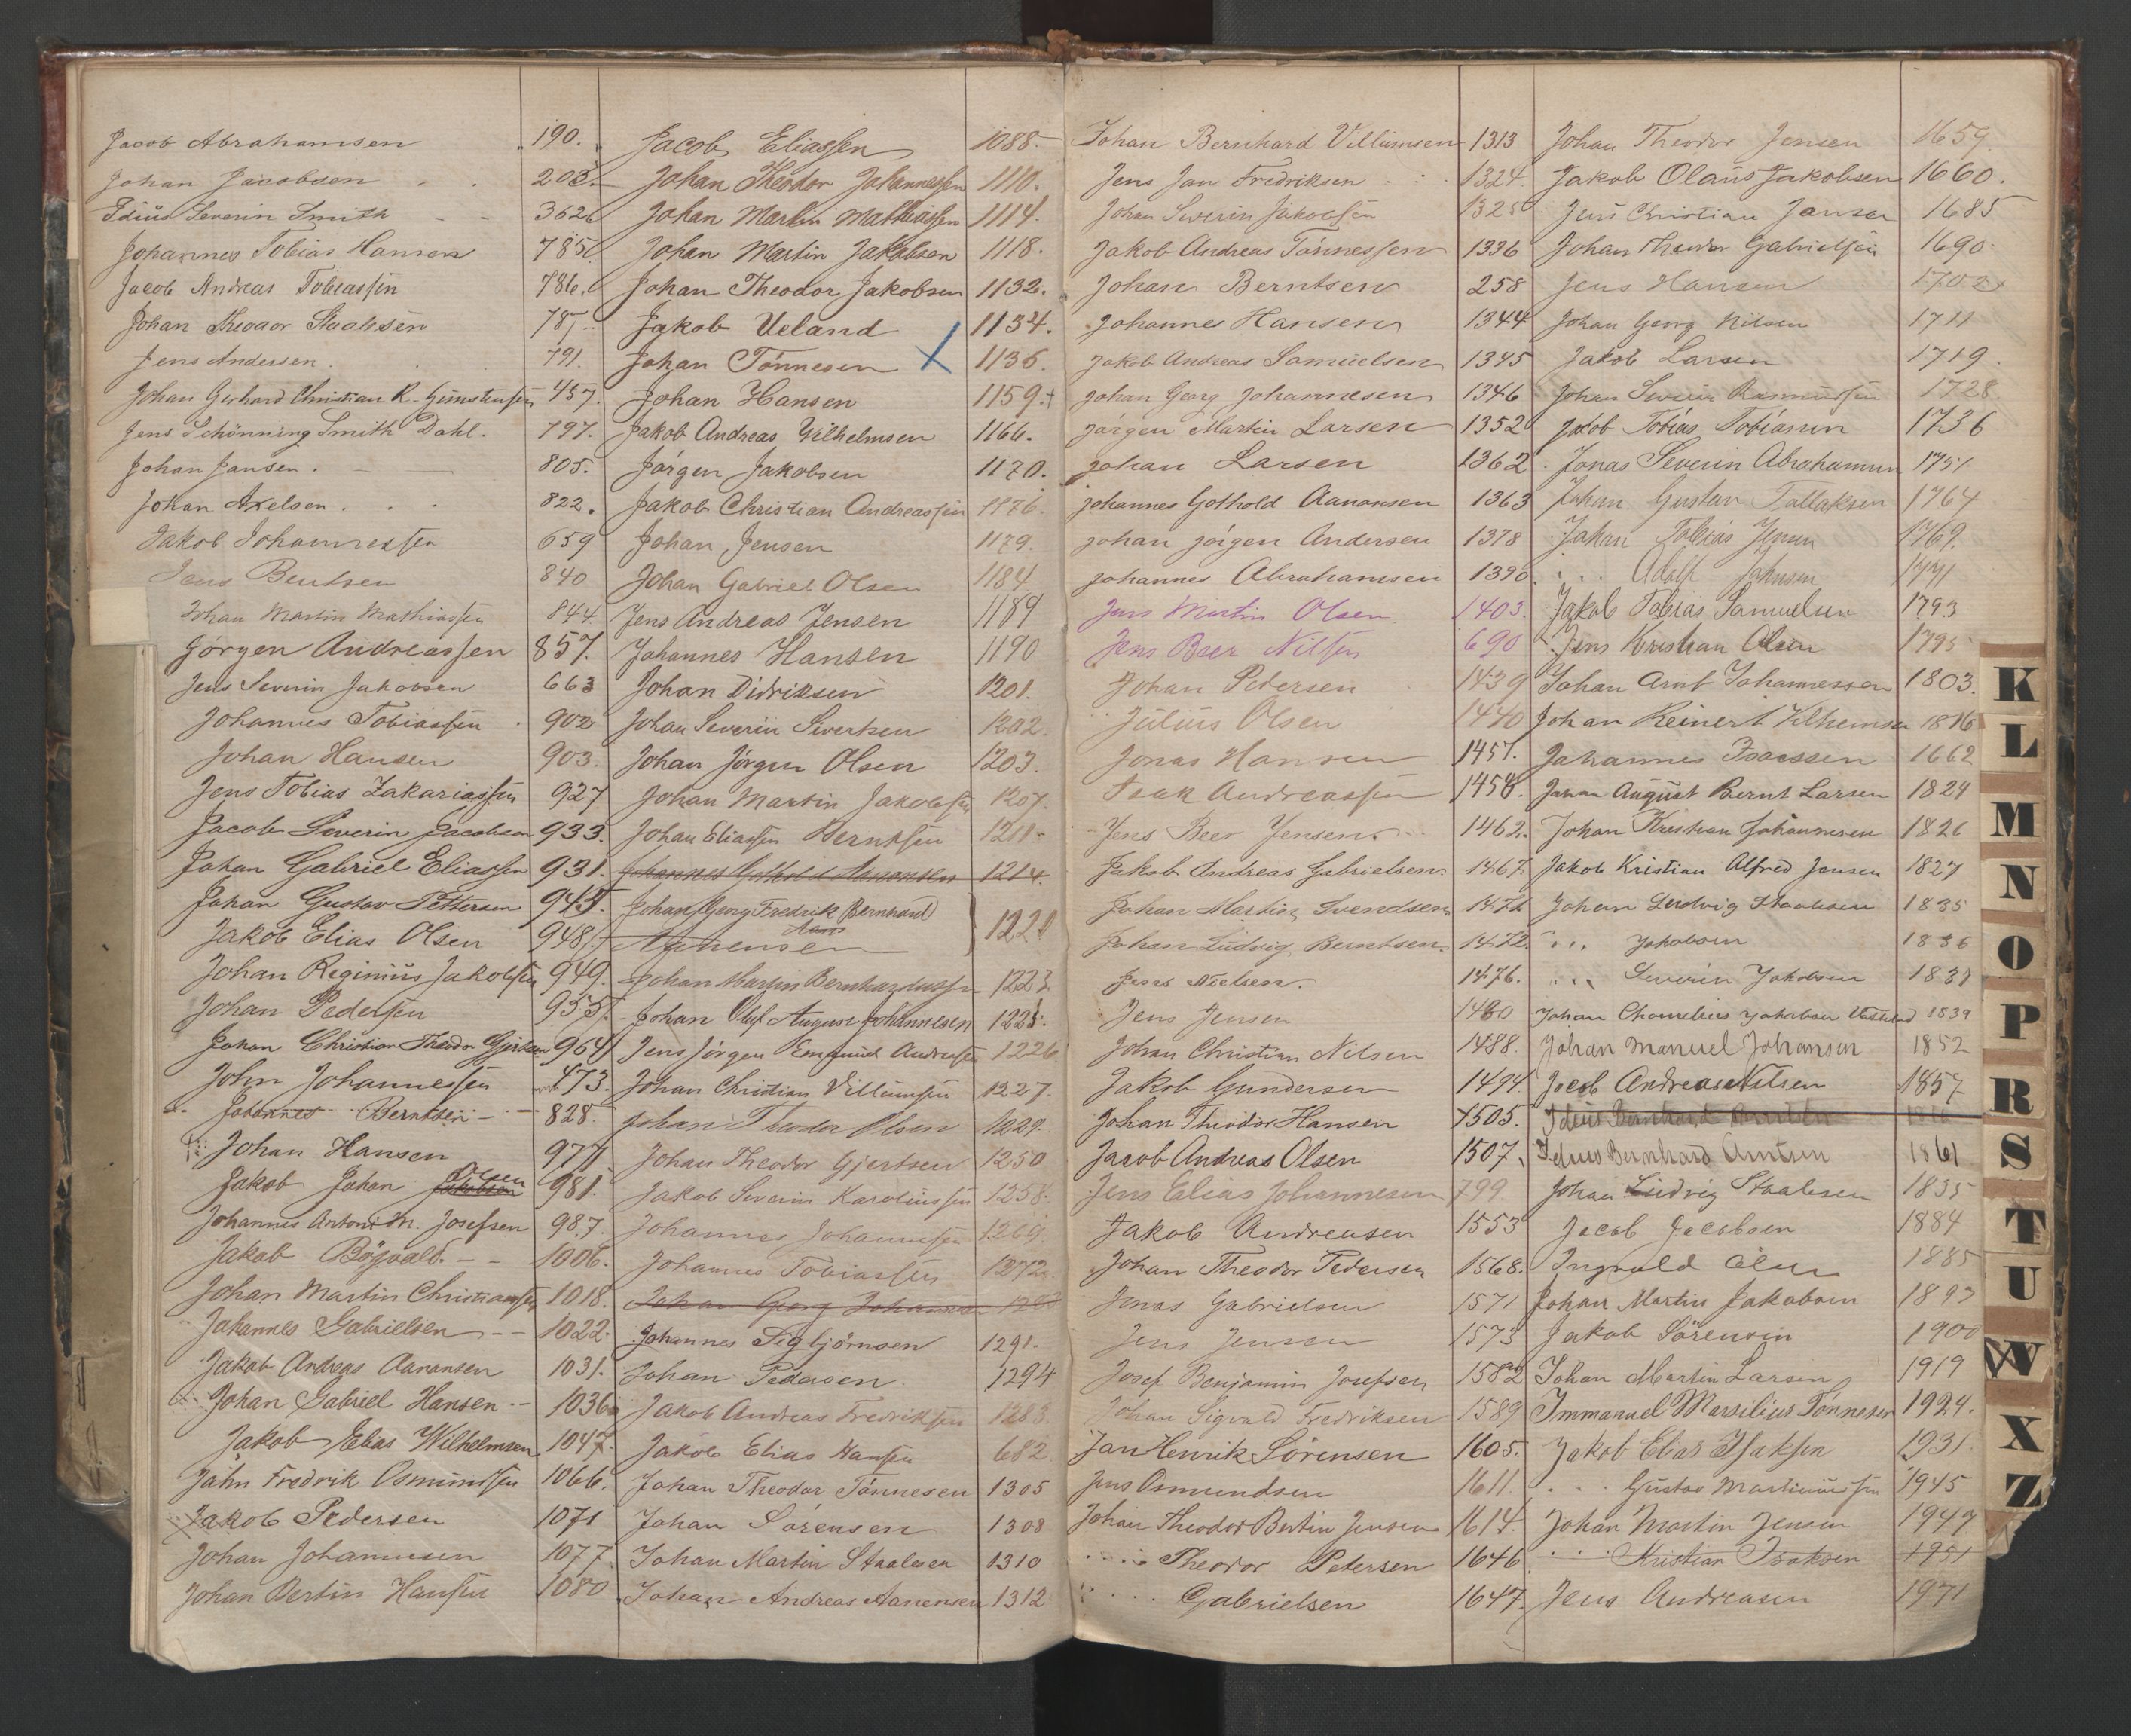 Jacob Abrahamsen 190.
Johan Jacobsen 203.
Idius Severin Smith 362
Johannes Tobias Hansen 785
Jacob Andreas Tobiassen 786.
Johan Theodor Staalesen 787
Jens Andersen. 791.
Johan Gerhard Christian R. 457.
Jens Schönning Smith Dahl. 797.
Johan Jansen. 805.
Johan Axelsen. 822.
Jakob Johannessen 659
Jens Bentsen 840
Johan Martin Mathiassen 844
Jørgen Andreassen 857.
Jens Severin Jakobsen 663
Johannes Tobiassen 902
Johan Hansen 903.
Jens Tobias Zakariassen 927
Jacob Severin Jacobsen 933.
Johan Gabriel Eliassen 931.
Johan Gustav Pettersen 945.
Jakob Elias Olsen 948.
Johan Reginius Jakobsen 949.
Johan Pedersen 955.
Johan Christian Theodor Gjertsen 964
John Johannessen 473.
Johannes Berntsen 828.
Johan Hansen 977
Jakob Johan Jakobsen Olsen 981.
Johannes Anton M. Josefsen 987.
Jakob Bögvald. 1006.
Johan Martin Christiansen 1018.
Johannes Gabrielsen 1022.
Jakob Andreas Aanansen 1031.
Johan Gabriel Hansen 1036
Jakob Elias Wilhelmsen 1047.
John Fredrik Osmundsen 1066.
Jakob Pedersen 1071
Johan Johannesen 1077
Johan Bertin Hansen 1080
Jacob Eliassen 1088.
Johan Theodor Johannessen 1110.
Johan Martin Mathiassen 1114.
Johan Martin Jakobsen 1118.
Johan Theodor Jakobsen 1132.
Jakob Ueland 1134.
Johan Tönnesen 1136.
Johan Hansen 1159.
Jakob Andreas Vilhelmsen 1166.
Jørgen Jakobsen 1170.
Jakob Christian Andreassen 1176.
Johan Jensen 1179.
Johan Gabriel Olsen 1184
Jens Andreas Jensen 1189
Johannes Hansen 1190
Johan Didriksen 1201.
Johan Severin Sivertsen 1202.
Johan Jørgen Olsen 1203.
Johan Martin Jakobsen 1207.
Johan Eliassen Berntsen 1211.
Johannes Gothold Aanansen 1214.
Johan Georg Fredrik Bernhard
Hans
Aanensen 1221
Johan Martin Bernhardussen 1223
Johan Oluf August Johannesen 1225.
Jens Jørgen Emanuel Andreassen 1226
Johan Christian Villumsen 1227.
Johan Theodor Olsen 1229.
Johan Theodor Gjertsen 1250
Jakob Severin Karoliussen 1258.
Johannes Johannessen 1269
Johannes Tobiassen 1272
Johan Georg Johannesen
Johannes Sigbjörnsen 1291.
Johan Pedersen. 1294
Jakob Andreas Fredriksen 1283.
Jakob Elias Hansen 682
Johan Theodor Tönnesen 1305
Johan Sørensen 1308
Johan Martin Staalesen 1310
Johan Andreas Aanensen 1312
Johan Bernhard Villumsen 1313
Jens Jan Fredriksen 1324.
Johan Severin Jakobsen 1325
Jakob Andreas Tönnessen 1336
Johan Berntsen 258
Johannes Hansen 1344
Jakob Andreas Samuelsen 1345
Johan Georg Johannesen 1346
Jørgen Martin Larsen 1352
Johan Larsen 1362
Johannes Gothold Aanonsen 1363
Johan Jörgen Andersen 1378
Johannes Abrahamsen 1390.
Jens Martin Olsen. 1403.
Jens Beer Nilsen 690
Johan Pedersen 1439
Julius Olsen 1440
Jonas Hansen 1457.
Isak Andreassen 1458.
Jens Beer Jensen. 1462.
Jakob Andreas Gabrielsen. 1467.
Johan Martin Svendsen 1471
Johan Ludvig Berntsen. 1472.
Jens Nielsen. 1476.
Jens Jensen 1480
Johan Christian Nilsen 1488.
Jakob Gundersen 1494.
Johan Theodor Hansen 1505.
Jacob Andreas Olsen 1507.
Jens Elias Johannesen 799
Jakob Andreasen 1553
Johan Theodor Pedersen 1568.
Jonas Gabrielsen 1571
Jens Jensen 1573
Josef Benjamin Josefsen 1582
Johan Sigvald Fredriksen 1589
Jan Henrik Sørensen 1605.
Jens Osmundsen 1611.
Johan Theodor Bertin Jensen 1614.
Theodor Petersen 1646
Gabrielsen 1647.
Johan Theodor Jensen 1659
Jakob Olaus Jakobsen 1660.
Jens Christian Jansen 1685
Johan Theodor Gabrielsen 1690.
Jens Hansen 1702
Johan Georg Nilsen 1711
Jakob Larsen 1719
Johan Severin Rasmussen 1728
Jakob Tobias Tobiassen 1736
Jonas Severin Abrahamsen 1751
Johan Gustav Tallaksen 1764
Johan Tobias Jensen 1769.
Adolf Johnsen 1771
Jakob Tobias Samuelsen 1793
Jens Kristian Olsen 1795
Johan Arnt Johannessen 1803.
Johan Reinert Vilhemsen 1816
Johannes Isacssen 1662
Johan August Bernt Larsen 1824
Johan Kristian Johannesen 1826
Jakob Kristian Alfred Jensen 1827
Johan Ludvig Staalesen 1835
Jakobsen 1836
Severin Jakobsen 1837
Johan Cornelius Jakobsen 1839
Johan Manuel Johansen 1852
Jacob Andreas Nilsen 1857
Idius Bernhard Arntsen
Idius Bernhard Arntsen 1861
Johan Ludvig Staalesen 1835
Jacob Jacobsen 1884
Ingvald Olsen 1885
Johan Martin Jakobsen 1893
Jakob Sörensen 1900
Johan Martin Larsen 1919
Immanuel Marsilius Tönnesen 1924.
Jakob Elias Isaksen 1931
Gustav Martinussen 1945
Johan Martin Jensen 1947
Kristian Isaksen 1951
Jens Andreasen 1971
K
L
M
N
O
P
R
S
T
U
W
X
Z